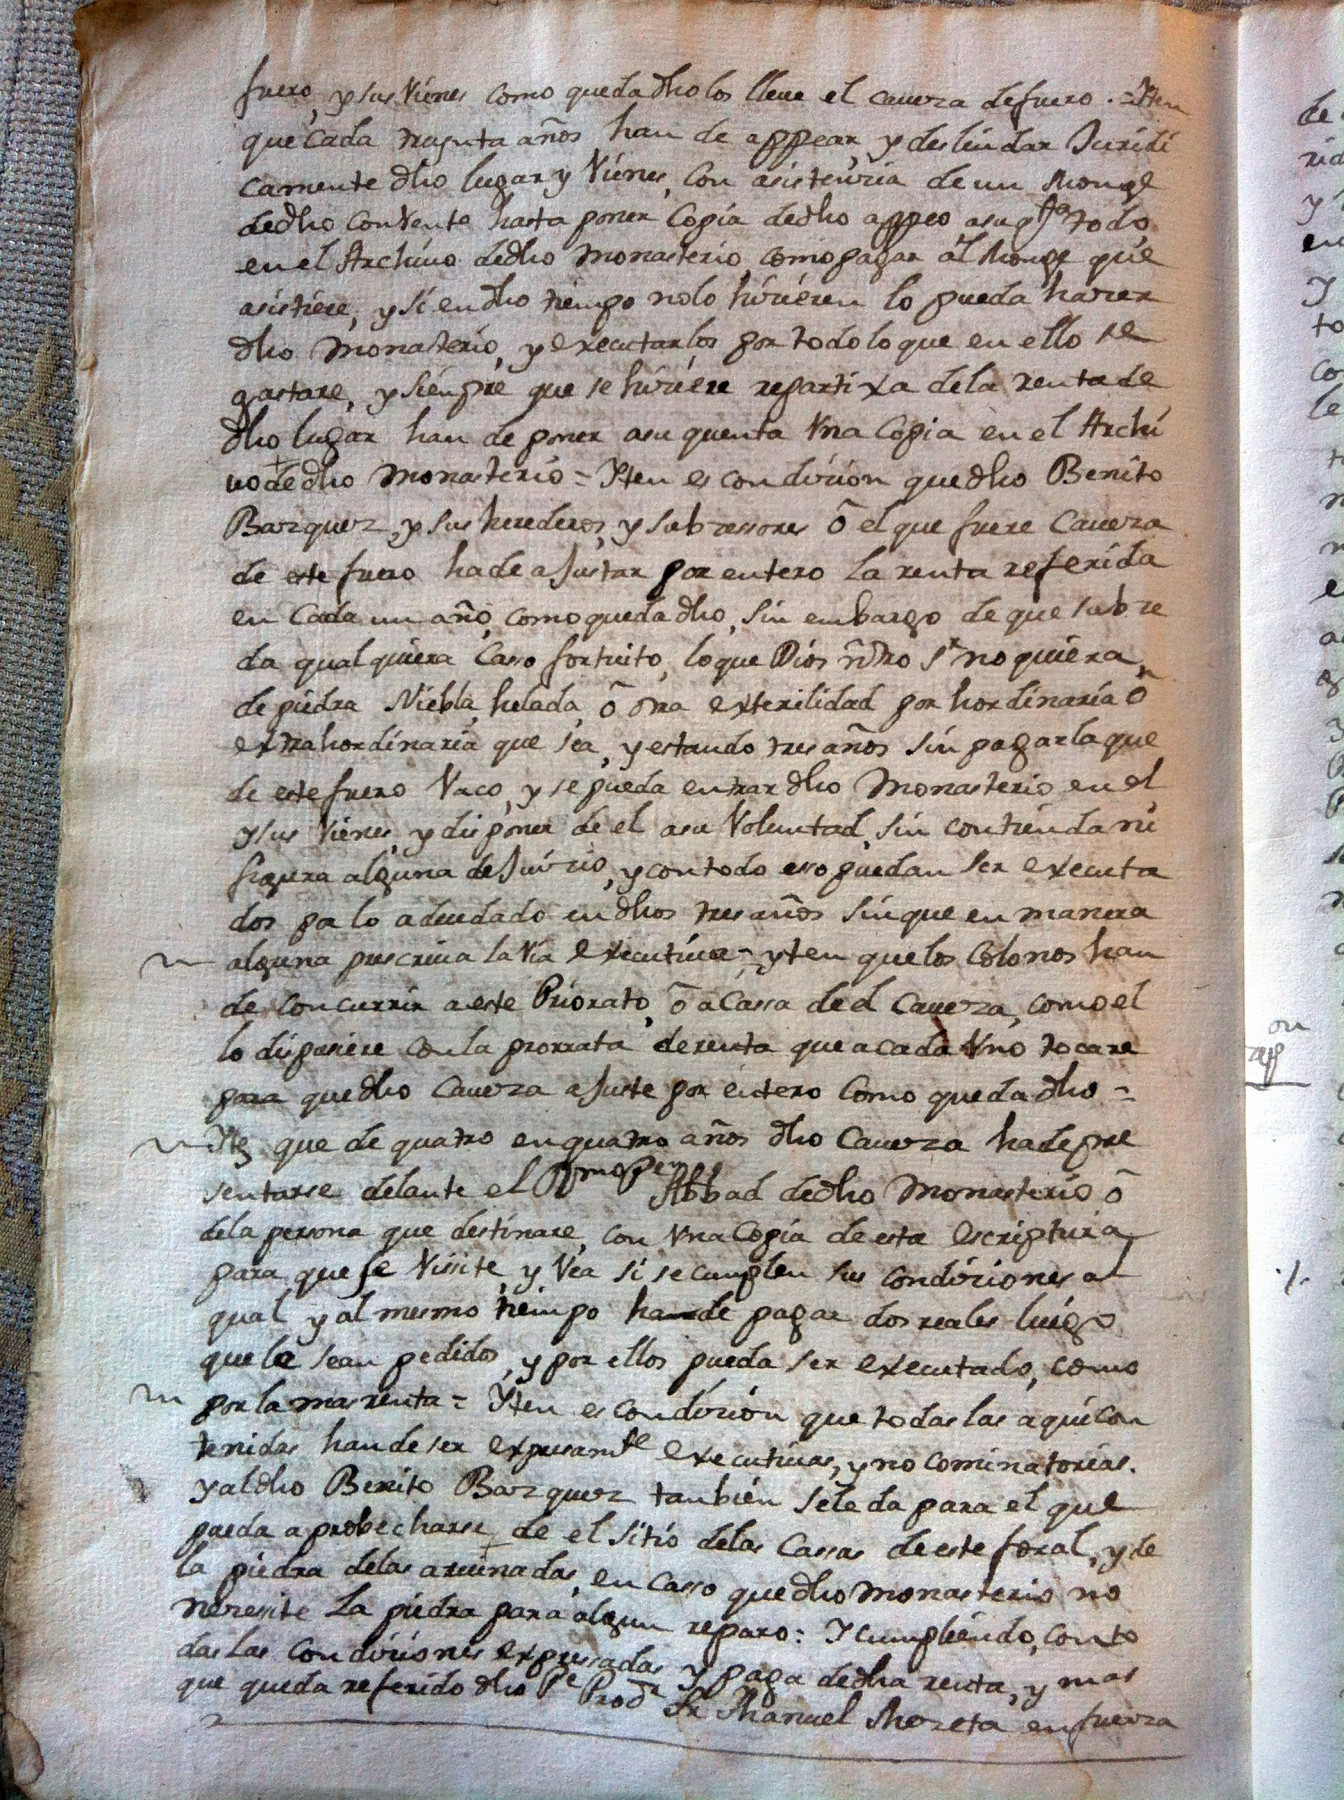 fuero, y sus Vienes como queda dho los lleue el caueza de fuero. = Yten
que cada treynta años han de appear, y deslindar Juridi
camente dho lugar y Vienes, con asistenzia de un Monge
de dho conVento hasta poner Copia de dho appeo asu qta todo
en el Archiuo de dho Monasterio, como pagar al Monge que
asistiere, y si en dho tiempo no lo hizieren lo pueda hazer
dho Monasterio, y executarlos por todo lo que en ello se
gastare, y siempre que se hiziere repartixa de la renta de
dho lugar han de poner asu quenta Vna Copia en el Archi
uo de dho Monasterio = Yten es condizion que dho Benito
Bazquez, y sus herederos, y subzessores ô el que fuere Caueza
de este fuero ha de aJustar por entero la renta referida
en Cada un año, como queda dho, sin embargo de que subze
da qualquiera Casso fortuito, lo que Dios nro Sr no quiera,
de piedra Niebla, helada, ô otra exterilidad por hordinaria ô
extrahordinaria que sea, y estando tres años sin pagarla que
de este fuero Vaco, y se pueda entrar dho Monasterio en el
y sus Vienes, y disponer de el asu Voluntad, sin contienda ni
figura alguna de Juizio, y con todo esso puedan ser executa
dos pa lo adeudado en dhos tres años sin que en manera
alguna prescriua la Via executiua = yten que los Colonos han
de concurrir a este Priorato, ô a Cassa de el Caueza, como el
lo dispusiere con la prorrata de renta que a cada Vno tocare
para que dho Caueza aJuste por entero Como queda dho =
Yten que de quatro en quatro años dho Caueza ha de pre
sentarse delante el Rmo Pe Abbad de dho Monasterio ô
de la persona que destinare, con Vna Copia de esta escriptura
para que se Vissite, y Vea si se cumplen sus condiziones al
qual y al mesmo tiempo han de pagar dos reales luego
que le sean pedidos, y por ellos pueda ser executado, como
por la mas renta = Yten es condizion que todas las aqui con
tenidas han de ser expresamte executiuas, y no cominatorias.
y al dho Benito Bazquez tanbien se le da para el que
pueda aprobecharse de el sitio de las Cassas de este foral, y de
la piedra de las aruinadas, en casso que dho Monasterio no
nezesite la piedra para algun reparo: Y cumpliendo, con to
das las condiziones expresadas y paga de dha renta, y mas
que queda referido dho Pe Prodr Fr Manuel Moreta en fuerza